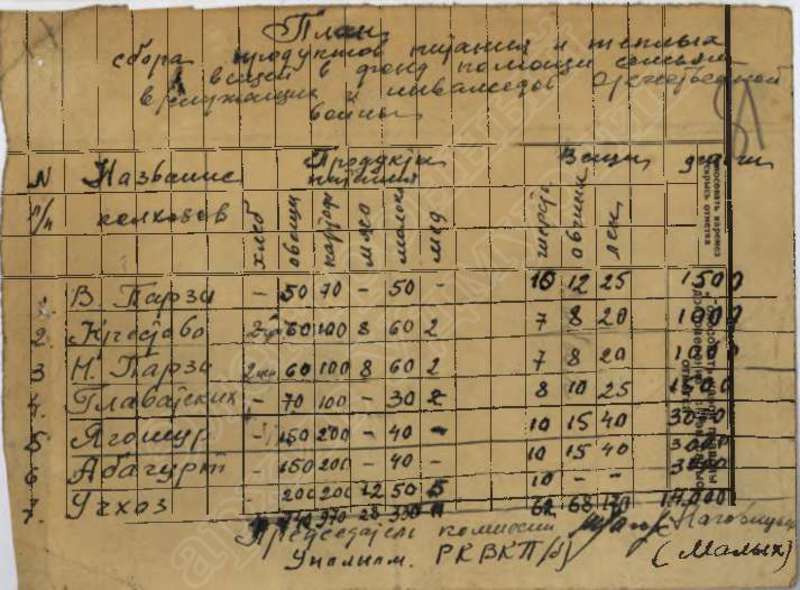 План
сбора продуктов питания и теплых
вещей в фонд помощи семьям
в/служащих и инвалидов Отечественной
войны
81
N Название Продукты Вещи деньги
п/п колхозов питания
хлеб овощи картоф мясо молоко мед шерсть овчины лен
1. В. Парзи - 50 70 - 50 - 10 12 25 1500
2. 60 100 8 60 2 7 8 20 1000
3 Н. Парзи 60 100 8 60 2 7 8 20 1000
4. Главатских - 70 100 - 30 2 8 10 25 1500
5 Ягошур - 150 200 - 40 - 10 15 40 3000
6 Абагурт - 150 200 - 40 - 10 15 40 3000
7. Учхоз - 200 200 12 50 5 10 - -
62 68 170
Председатель комиссии
Уполном. РКВКП/б/ (Малых)